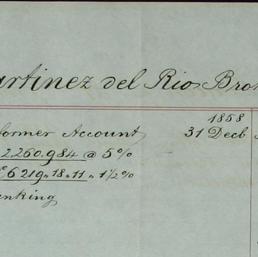 artinez del Rio Bro
1858
former Account 31 Decb
2260.984 @ 5 %
£6219.18.11 " 1½ %
anking